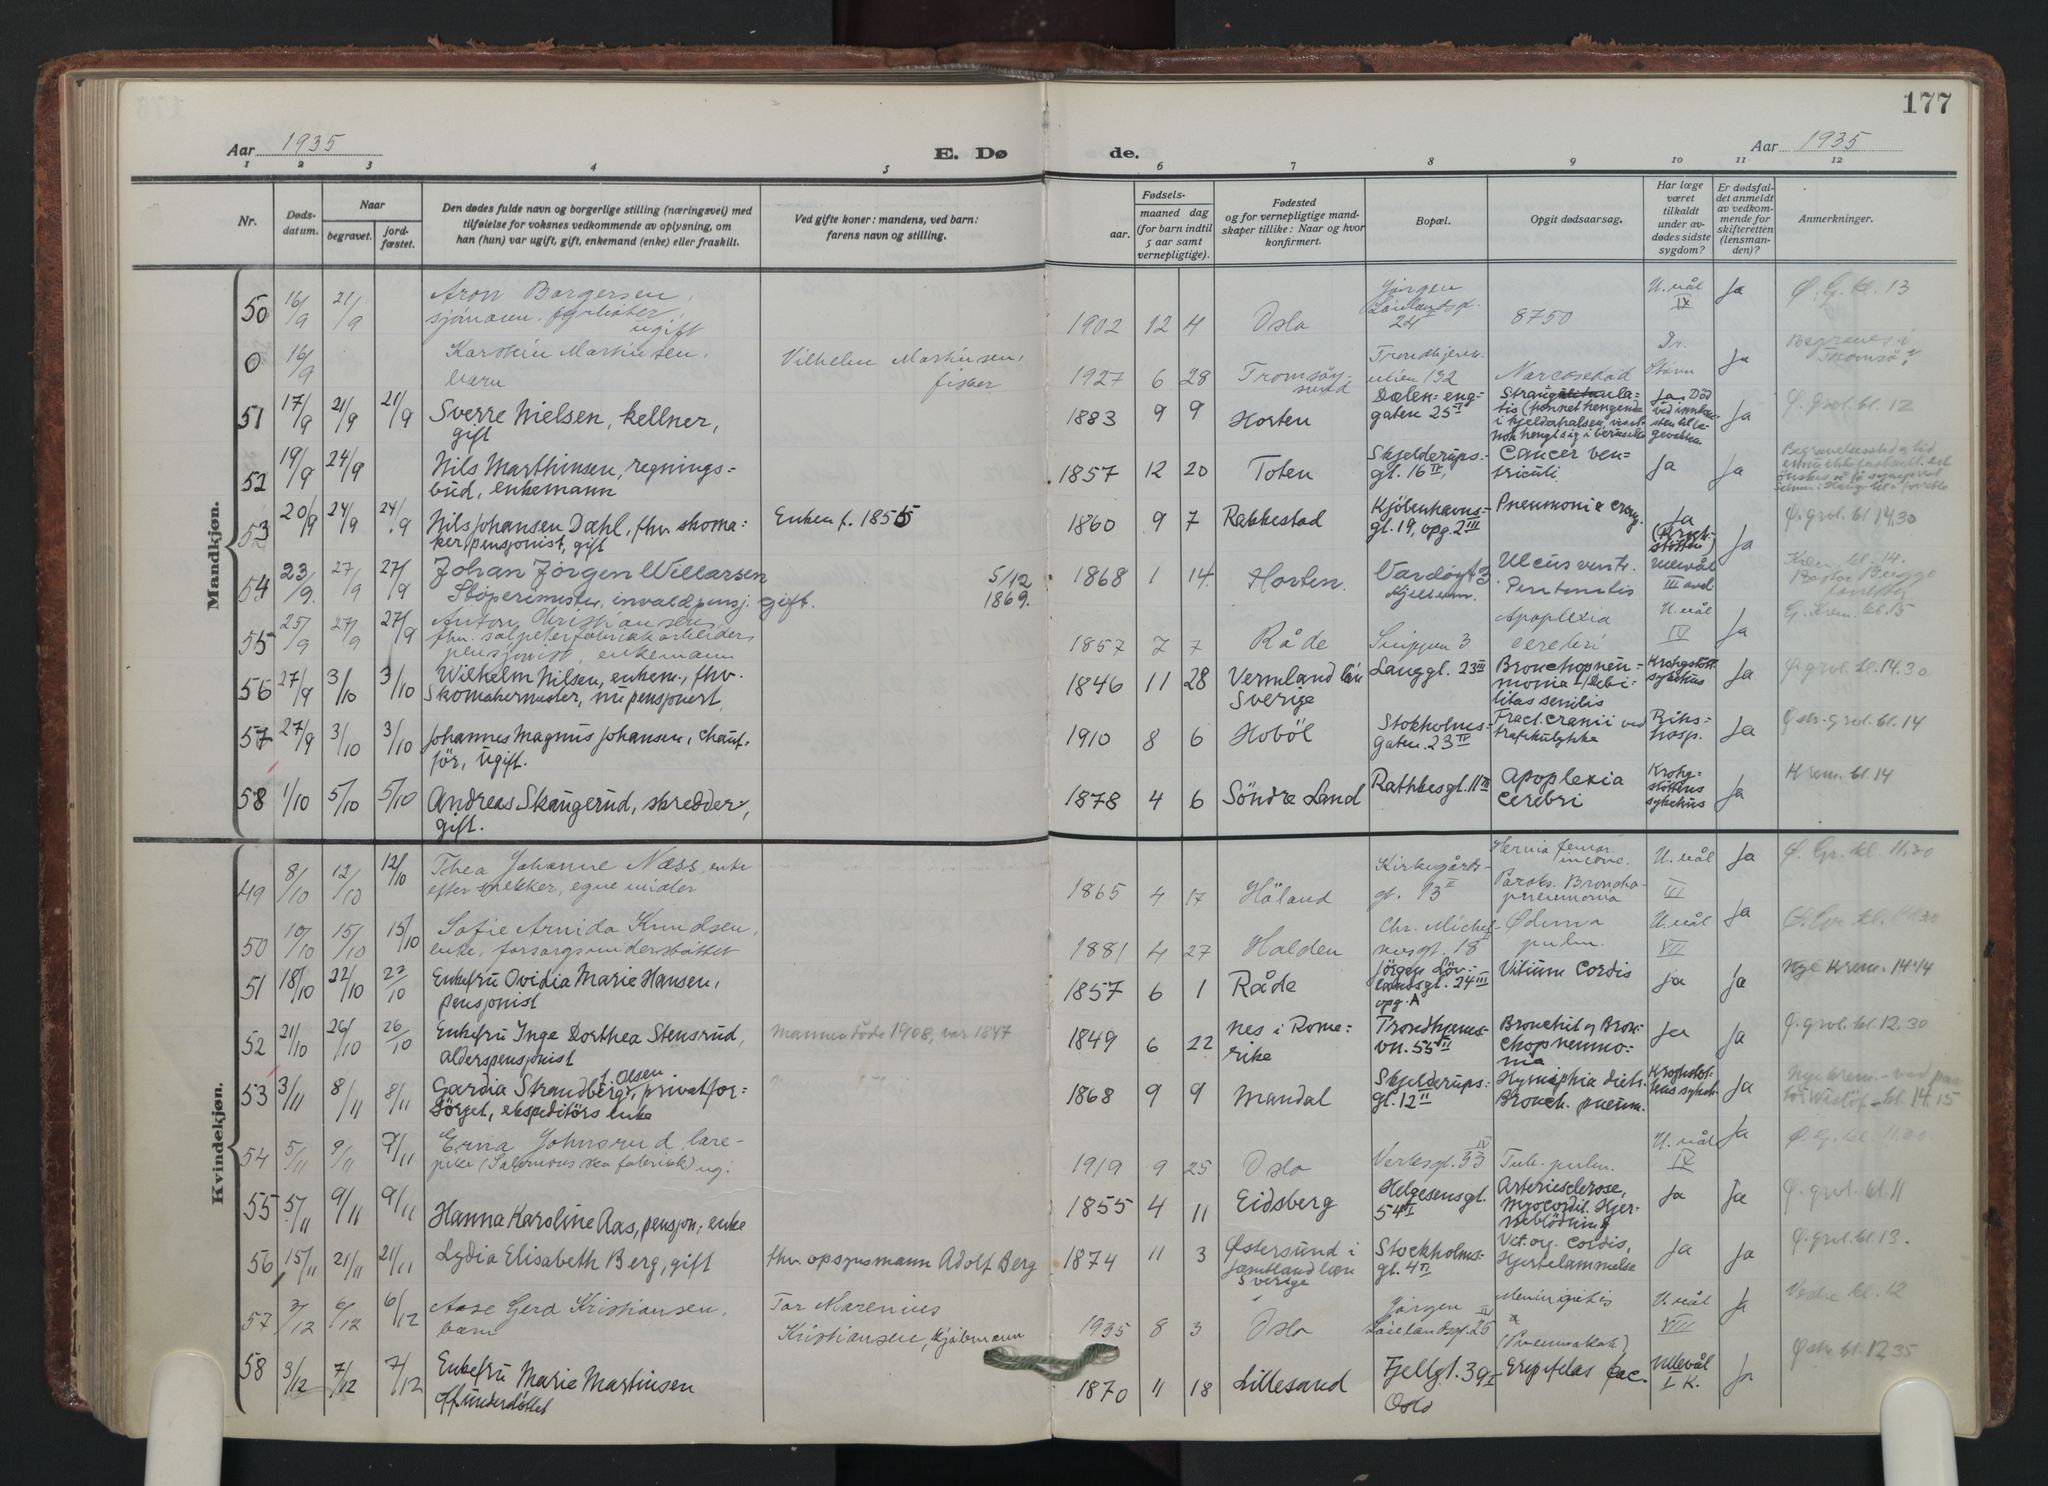 177
Aar 1935 E. Dø de. Aar 1935
1 2 3 4 5 6 7 8 9 10 11 12
Nr. Døds-datum. Naar begravet. jord-fæstet. Den dødes fulde navn og borgerlige stilling (næringsvei) med tilføielse for voksnes vedkommende av oplysning, om han (hun) var ugift, gift, enkemand (enke) eller fraskilt. Ved gifte koner: mandens, ved barn: farens navn og stilling. Fødsels- aar. maaned dag (for barn indtil 5 aar samt vernepligtige). Fødested og for vernepligtige mandskaper tillike: Naar og hvor konfirmert. Bopæl. Opgit dødsaarsag. Har læge været tilkaldt under avdødes sidste sygdom? Er dødsfaldet anmeldt av vedkommende for skifteretten (lensmanden)? Anmerkninger.
Mandkjøn.
50 16/9 21/9 Aron Borgersen, sjömann ugift 1902 12 4 Oslo Jörgen Löwlandsgt. 24 8750 U.vål IX Ja Ø. G. kl. 13
0 16/9 Karstein Martinsen, barn Vilhelm Martinsen, fisker 1927 6 28 Tromsöysund Trondhjemsveien 132 Narcosedöd Dr. Ja Begraves i Tromsø
51 17/9 21/9 21/9 Sverre Nielsen, kellner, gift 1883 9 9 Horten Dælen-enggaten 25 II Ja. Död Ja Ø. grol. kl. 12
52 19/9 24/9 Nils Marthinsen, regningsbud, enkemann 1857 12 20 Toten Skjelderupsgt. 16 IV Cancer ventriculi Ja Ja
53 20/9 24/9 24/9 Nils Johansen Dæhl, fhv. skomaker, pensjonist, gift Enken f. 1855 1860 9 7 Rakkestad Kjöbenhavnsgt. 19, opg. 2 III Pneumonia croup. Ja (Krohgstötten) Ja Ø. grol. kl. 14.30
54 23/9 27/9 27/9 Johan Jörgen Willarsen Stöperimester, invalidpensj. gift. 5/12 1869. 1868 1 14 Horten Vardögt 3 Ulcus ventr. Peritonitis Ullevål III avd Ja Krem kl. 14.
55 25/9 27/9 27/9 Anton Christiansen fhv. salpeterfabrikarbeider, pensjonist, enkemann 1857 7 7 Råde Snippen 3 Apoplexia cerebri U.vål IV Ja G. Krem. kl. 15
56 27/9 3/10 3/10 Wilhelm Nilsen, enkem., fhv. Skomakermester, nu pensjonert. 1846 11 28 Vermland län Sverige Langgt. 23 III Bronchopneumonia Debilitas senilis Krohgstött. sykehus Ja Ø. grol. kl. 14.30
57 27/9 3/10 3/10 Johannes Magnus Johansen, chauffjör, ugift. 1910 8 6 Hobøl Stokholmsgaten 23 IV Fract. cranii ved trafikulykke Rikshosp. Ja Østr. grol. kl. 14
58 1/10 5/10 5/10 Andreas Skaugerud, skredder, gift. 1878 4 6 Söndre Land Rathkesgt. 11 III Apoplexia cerebri Krohgstöttens sykehus Ja Krem. kl. 14
Kvindekjøn.
49 8/10 12/10 12/10 Thea Johanne Næss, enke efter snekker, egne midler 1865 4 17 Höland Kirkegårdsgt. 13 II Hernia femor. incarc. Bronchopneumonia U.vål III Ja Ø. Gr. kl. 11.30
50 10/10 15/10 15/10 Sofie Arnida Knudsen, enke, forsorgsunderstöttet 1881 4 27 Halden Chr. Michelsensgt. 18 Ødema pulm. U.vål VII Ja
51 18/10 22/10 22/10 Enkefru Ovidia Marie Hansen, pensjonist 1857 6 1 Råde Jörgen Lövlandsgt. 24 III opg. A Vitium Cordis Ja Ja Nye Krem.
52 21/10 26/10 26/10 Enkefru Inge Dorthea Stensrud, alderspensjonist Mannen döde 1908, var 1847 1849 6 22 Nes i Romerike Trondhjemsvn. 55 Bronchit og Bronchopneumonia Ja Ja Ø. grol. kl. 12.30
53 3/11 8/11 8/11 Gardia Strandberg f. Olsen, privatforsörget, ekspeditörs enke 1868 9 9 Mandal Skjelderupsgt. 12 II Bronch. pneum. Krohgstöttens sykeh. Ja Nye krem.
54 5/11 9/11 7/11 Erna Johnsrud, ug. 1919 9 25 Oslo Verksgt. 33 IV Tub. pulm. U.vål IX Ja Ø. G. kl. 11.30
55 5/11 9/11 9/11 Hanna Karoline Aas, pensjon., enke 1855 4 11 Eidsberg Helgesensgt. 54 I Arteriesclerose, Myocordit. Hjerneblödning Ja Ja Ø. grol. kl. 11
56 15/11 21/11 21/11 Lydia Elisabeth Berg, gift fhv. opsynsmann Adolf Berg 1874 11 3 Østersund i Jæmtland læn Sverige Stockholmsgt. 4 Vit. org. Cordis, Hjertelammelse Ja Ja Ø. grol. kl. 13.
57 3/12 6/12 6/12 Aase Gerd Kristiansen, barn Tor Marenius Kristiansen, kjöbmann 1935 8 3 Oslo Jörgen Löwlandsgt. 26 IV Meningitis U.vål VIII Ja Vestre kl. 12
58 3/12 7/12 7/12 Enkefru Marie Martinsen off. understöttet 1870 11 18 Lillesand Fjellgt. 39 I Oslo Erysipelas fac. Ullevål I K. Ja Østre kl. 12.35